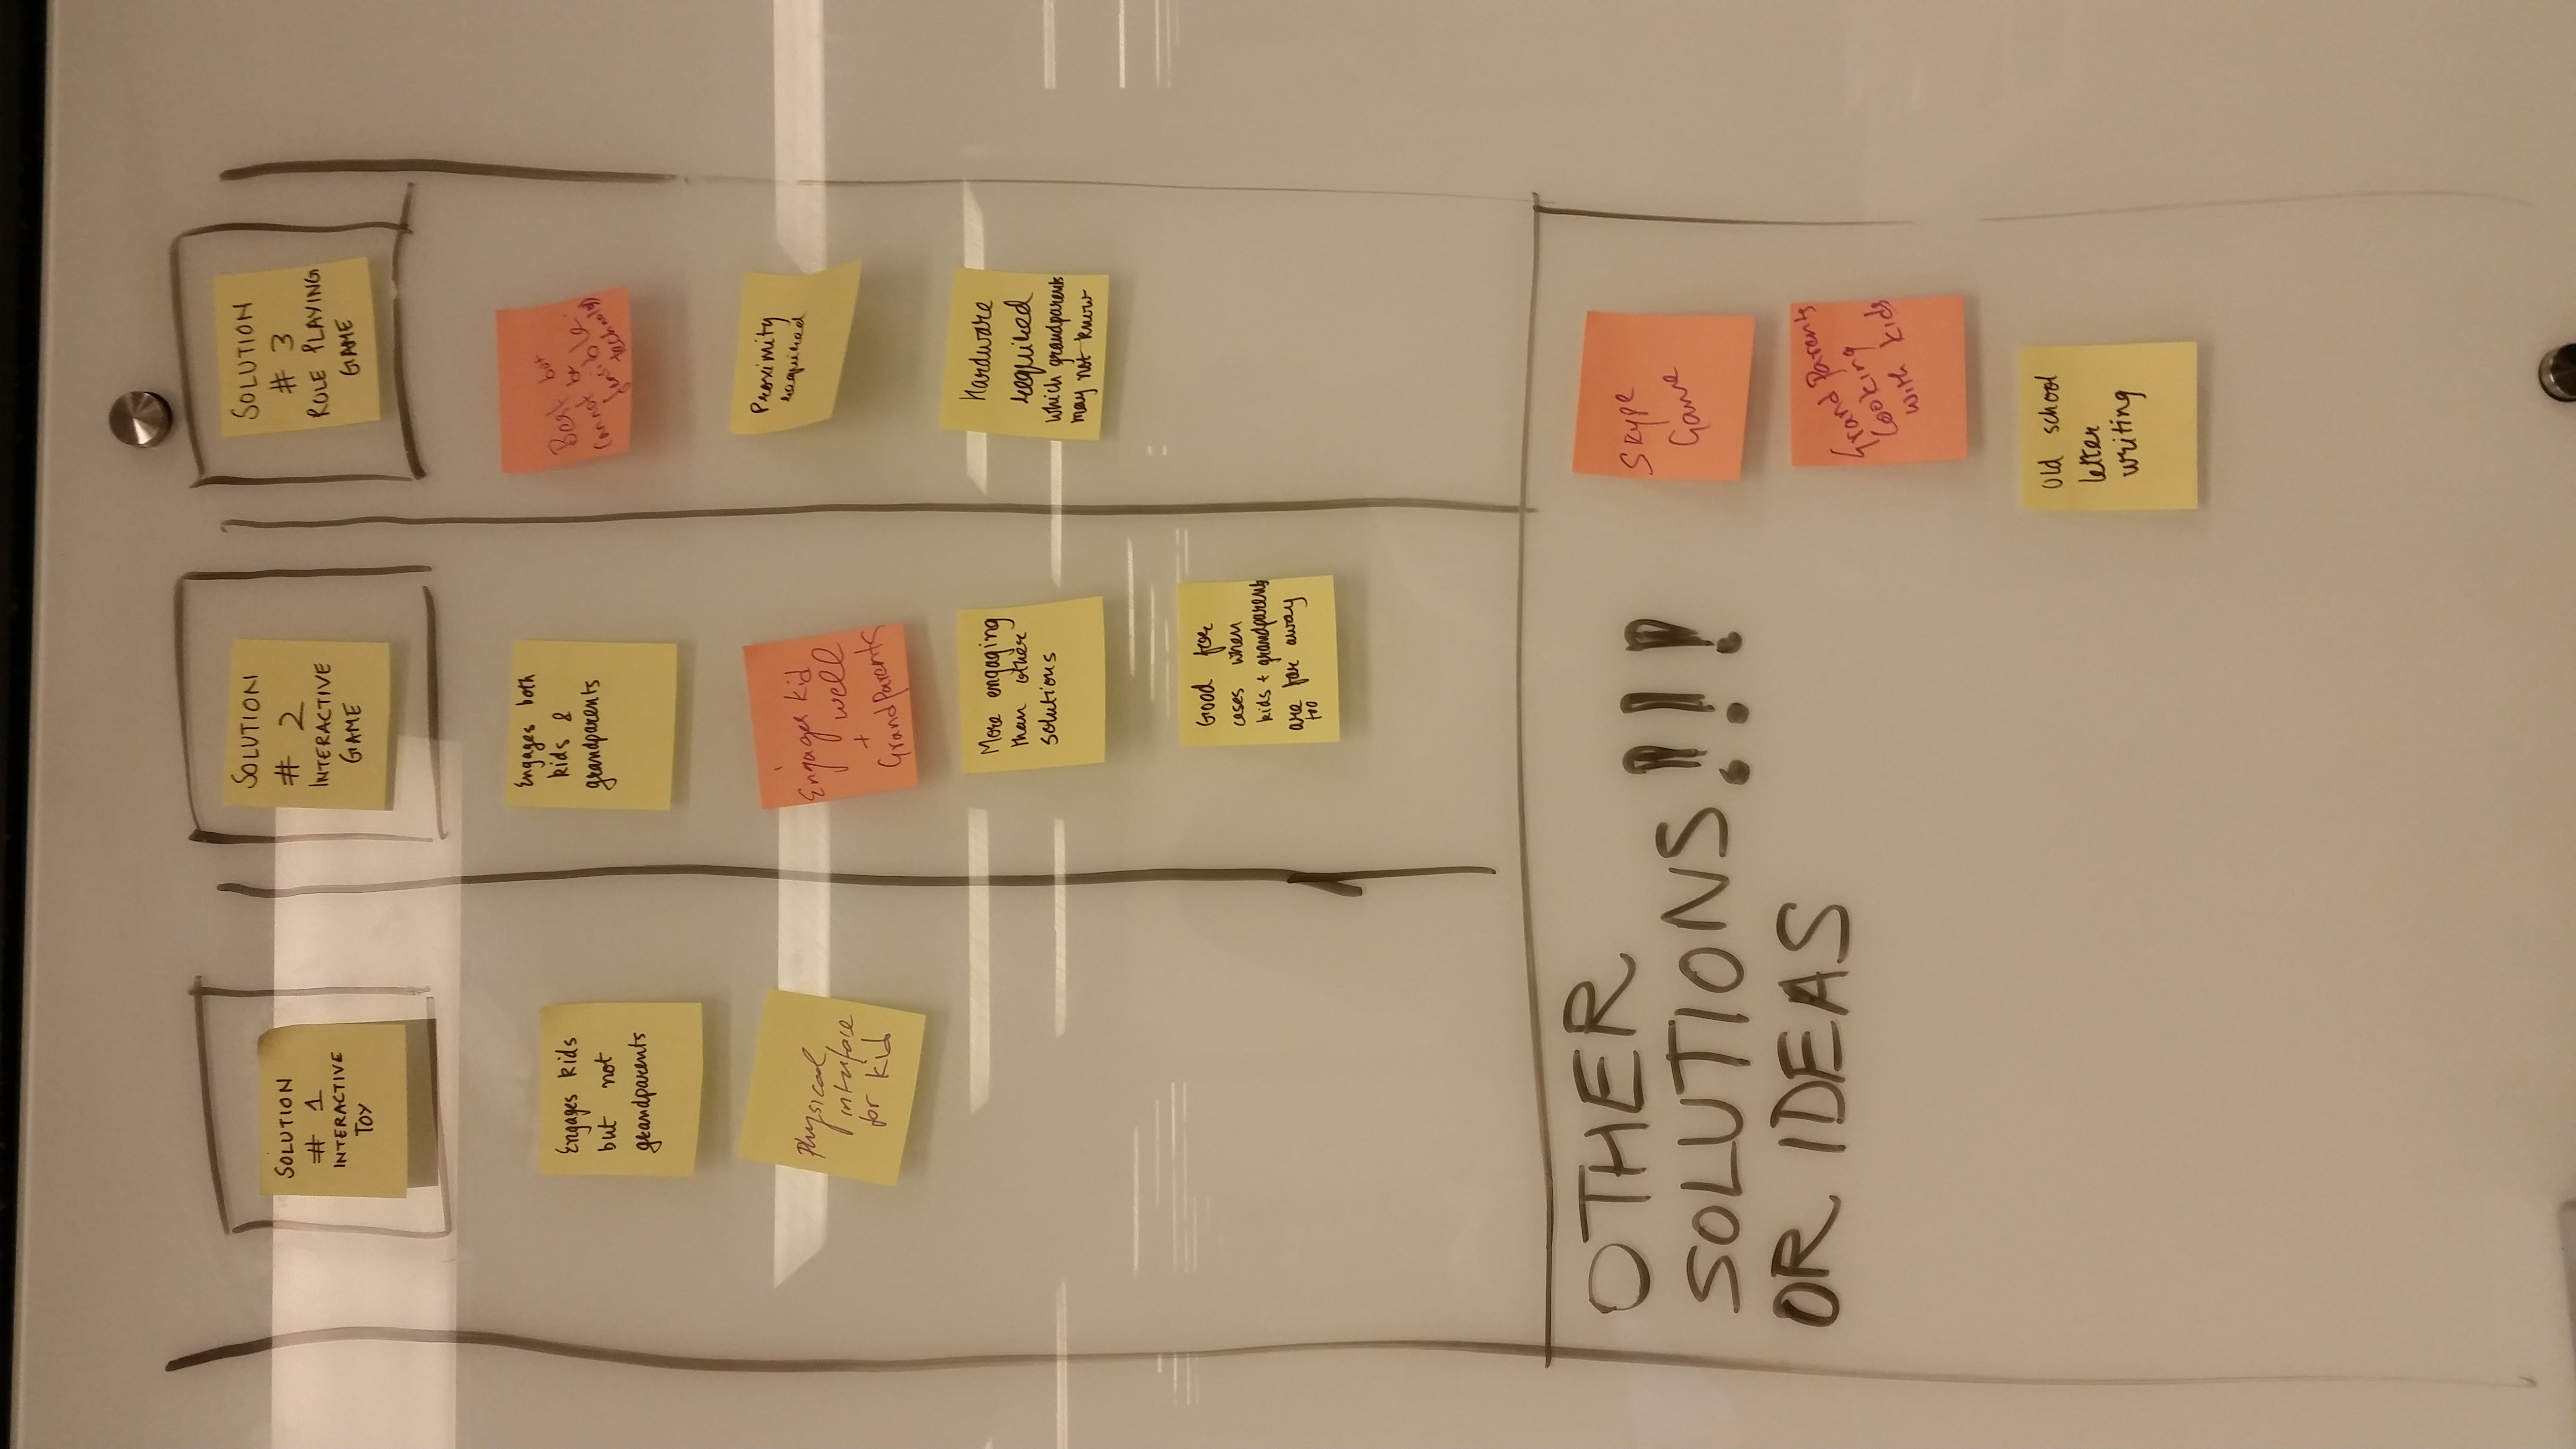 SOLUTION
# 1
INTERACTIVE
TOY
Engages kids
but not
grandparents
Physical
interface
for kid
SOLUTION
# 2
INTERACTIVE
GAME
Engages both
kids &
grandparents
Engages kid
well
+
GrandParents
More engaging
than other
solutions
Good for
cases when
kids + grandparents
are far away
too
SOLUTION
# 3
ROLE PLAYING
GAME
Best but
cannot be
fensible
technology
Proximity
required
Hardware
required
which grandparents
may not know
OTHER
SOLUTIONS!!!
OR IDEAS
Skype
Game
Grand Parents
Cooking
with kids
Old school
letter
writing